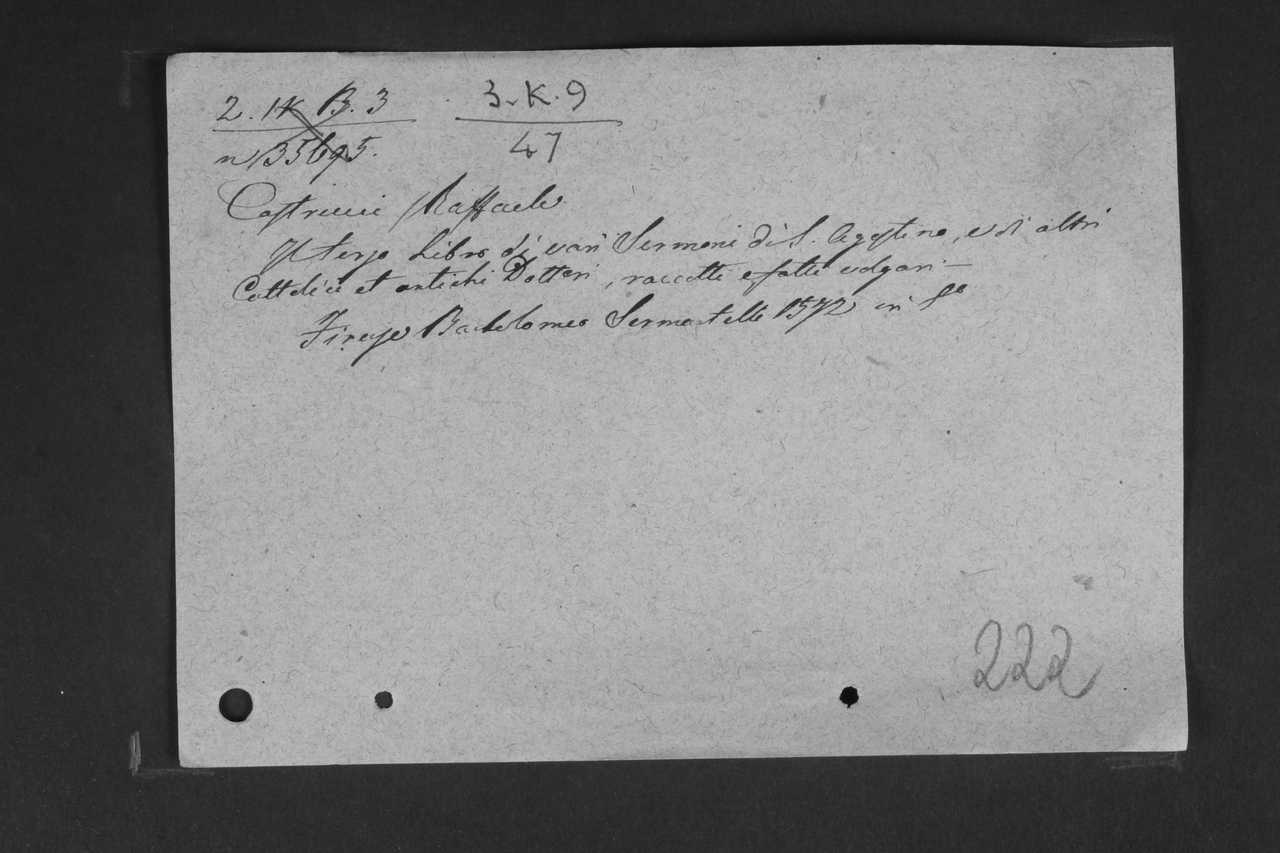 2. K B. 3
3. K. 9
n 35695.
47
Castrucci Raffaele
Il terzo Libro di vari Sermoni di S. Agostino, e di altri
Cattolici et antichi Dottori, raccolti e fatti volgari —
Firenze Bartolomeo Sermartelli 1572 in 8°
222